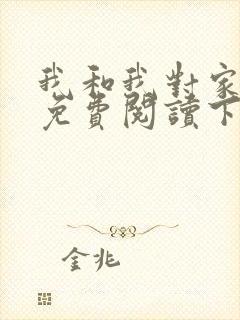 我和我對家
免費閱讀下
金兆